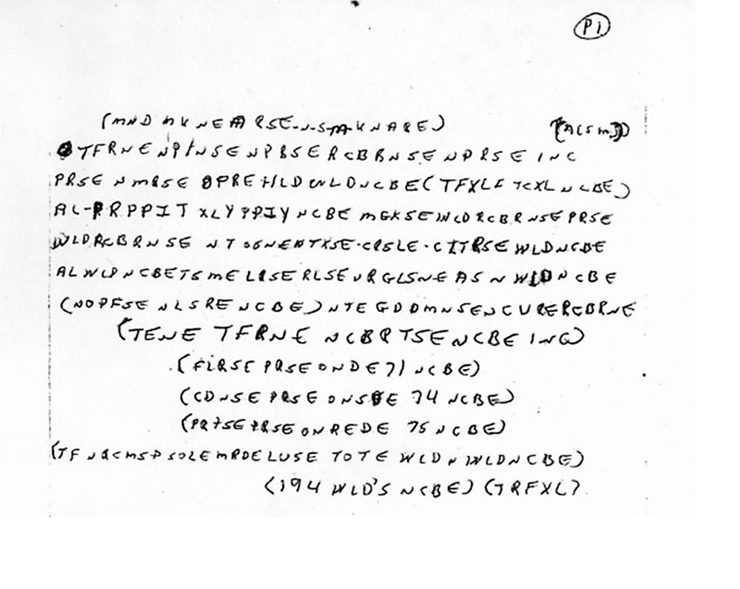 P1
(MND MKNEARSE-N-S-M-KNARE) (ACSM)
TFRNENPINSENPBSERCBRNSENPRSEINC
PRSENMRSEOPREHLDWLDNCBE(TFXLFTCXLNCBE)
AL-PRPPITXLYPPIYNCBEMGKSEWCDRCBRNSEPRSE
WLDRCBRNSENTOGNENTXSE-CRSLE-CITRSEWLDNCBE
ALWLPNCBETSMELRSERLSEURGLSNEASNWLDNCBE
(NOPFSENLSRENCBE)NTEGDDMNSENCURERCBRNE
(TENETFRNENCBRTSENCBEING)
(FLRSEPRSEONDE71NCBE)
(CDNSEPRSEONSDE74NCBE)
(PRTSEPRSEONREDE75NCBE)
(TFNRCMSPSOLEMRDELUSETOTEWLDNWLDNCBE)
(194WLD'SNCBE)(TRFXL)